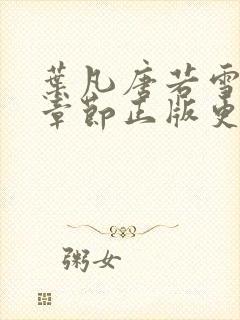 葉凡唐若雪
章節正版更
粥女